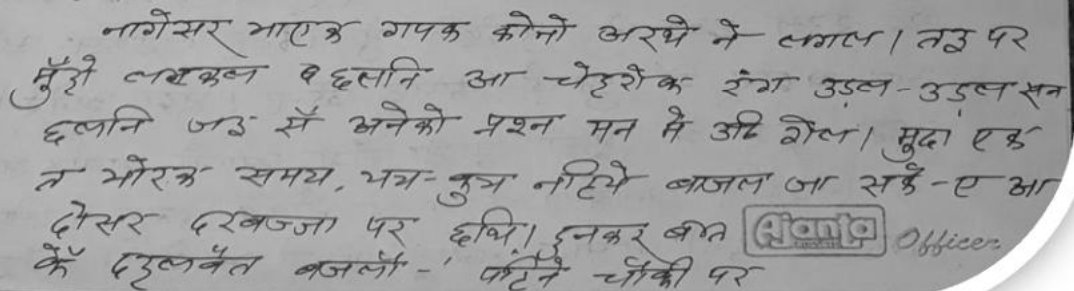 नागेसर भाएक गपक कोनो अरथे ने लागल। तइ पर
मुँहो लटकल छलनि आ चेहरोक रंग उड़ल-उड़ल सन
छलनि जइ सँ अनेको प्रश्न मन मे उठि गेल। मुदा एक
त भोरक समय, यत्र-कुत्र नहिये बाजल जा सकै-ए आ
दोसर दरबज्जा पर छथि। हुनकर बात Ajanta Officer
कें टहलबैत बजलौं-' पहिने चौकी पर